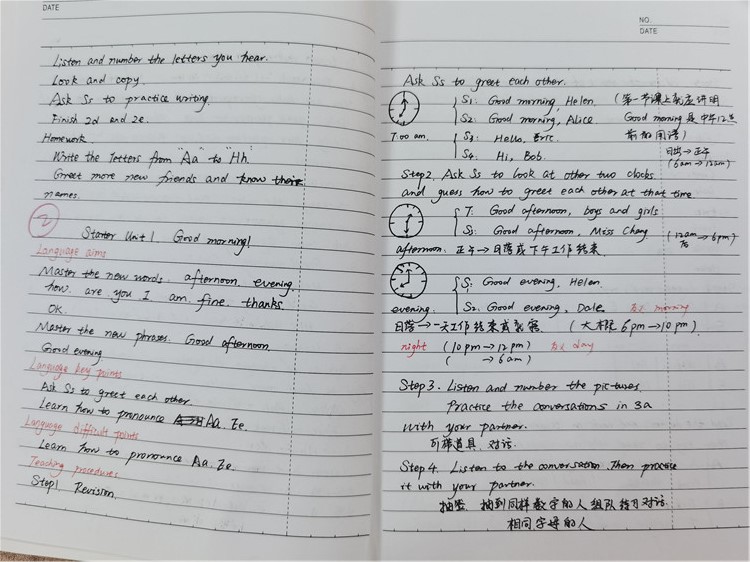 DATE
Listen and number the letters you hear.
Look and copy.
Ask Ss to practice writing.
Finish 2d and 2e.
Homework.
Write the letters from "Aa" to "Hh"
Greet more new friends and know their
names.
2
Starter Unit 1. Good morning!
Language aims
Master the new words. afternoon, evening,
how, are you I am, fine, thanks
OK.
Master the new phrases. Good afternoon.
Good evening
Language key points
Ask Ss to greet each other.
Learn how to pronounce Aa. Ee.
Language difficult points
Learn how to pronounce Aa. Ee.
Teaching procedures
Step1. Revision.
NO.
DATE
Ask Ss to greet each other.
S1: Good morning, Helen. (第一节课上就应讲明
S2: Good morning, Alice Good morning 是中午12点
7:00 am. S3: Hello, Eric. 前的用语)
S4: Hi, Bob. 日出→正午
(6am→12am)
Step2. Ask Ss to look at other two clocks
and guess how to greet each other at that time.
T: Good afternoon, boys and girls
Ss: Good afternoon, Miss Chang (12am后→6pm)
afternoon: 正午→日落或下午工作结束
S1: Good evening, Helen.
evening: S2: Good evening, Dale. 反义 morning
日落→一天工作结束或就寝 (大概 6pm→10pm)
night (10pm→12pm) 反义 day
( →6am)
Step 3. Listen and number the pictures.
Practice the conversations in 3a
with your partner.
可带道具 对话.
Step 4. Listen to the conversation. Then practice
it with your partner.
抽签. 抽到同样数字的人组队练习对话.
相同字母的人